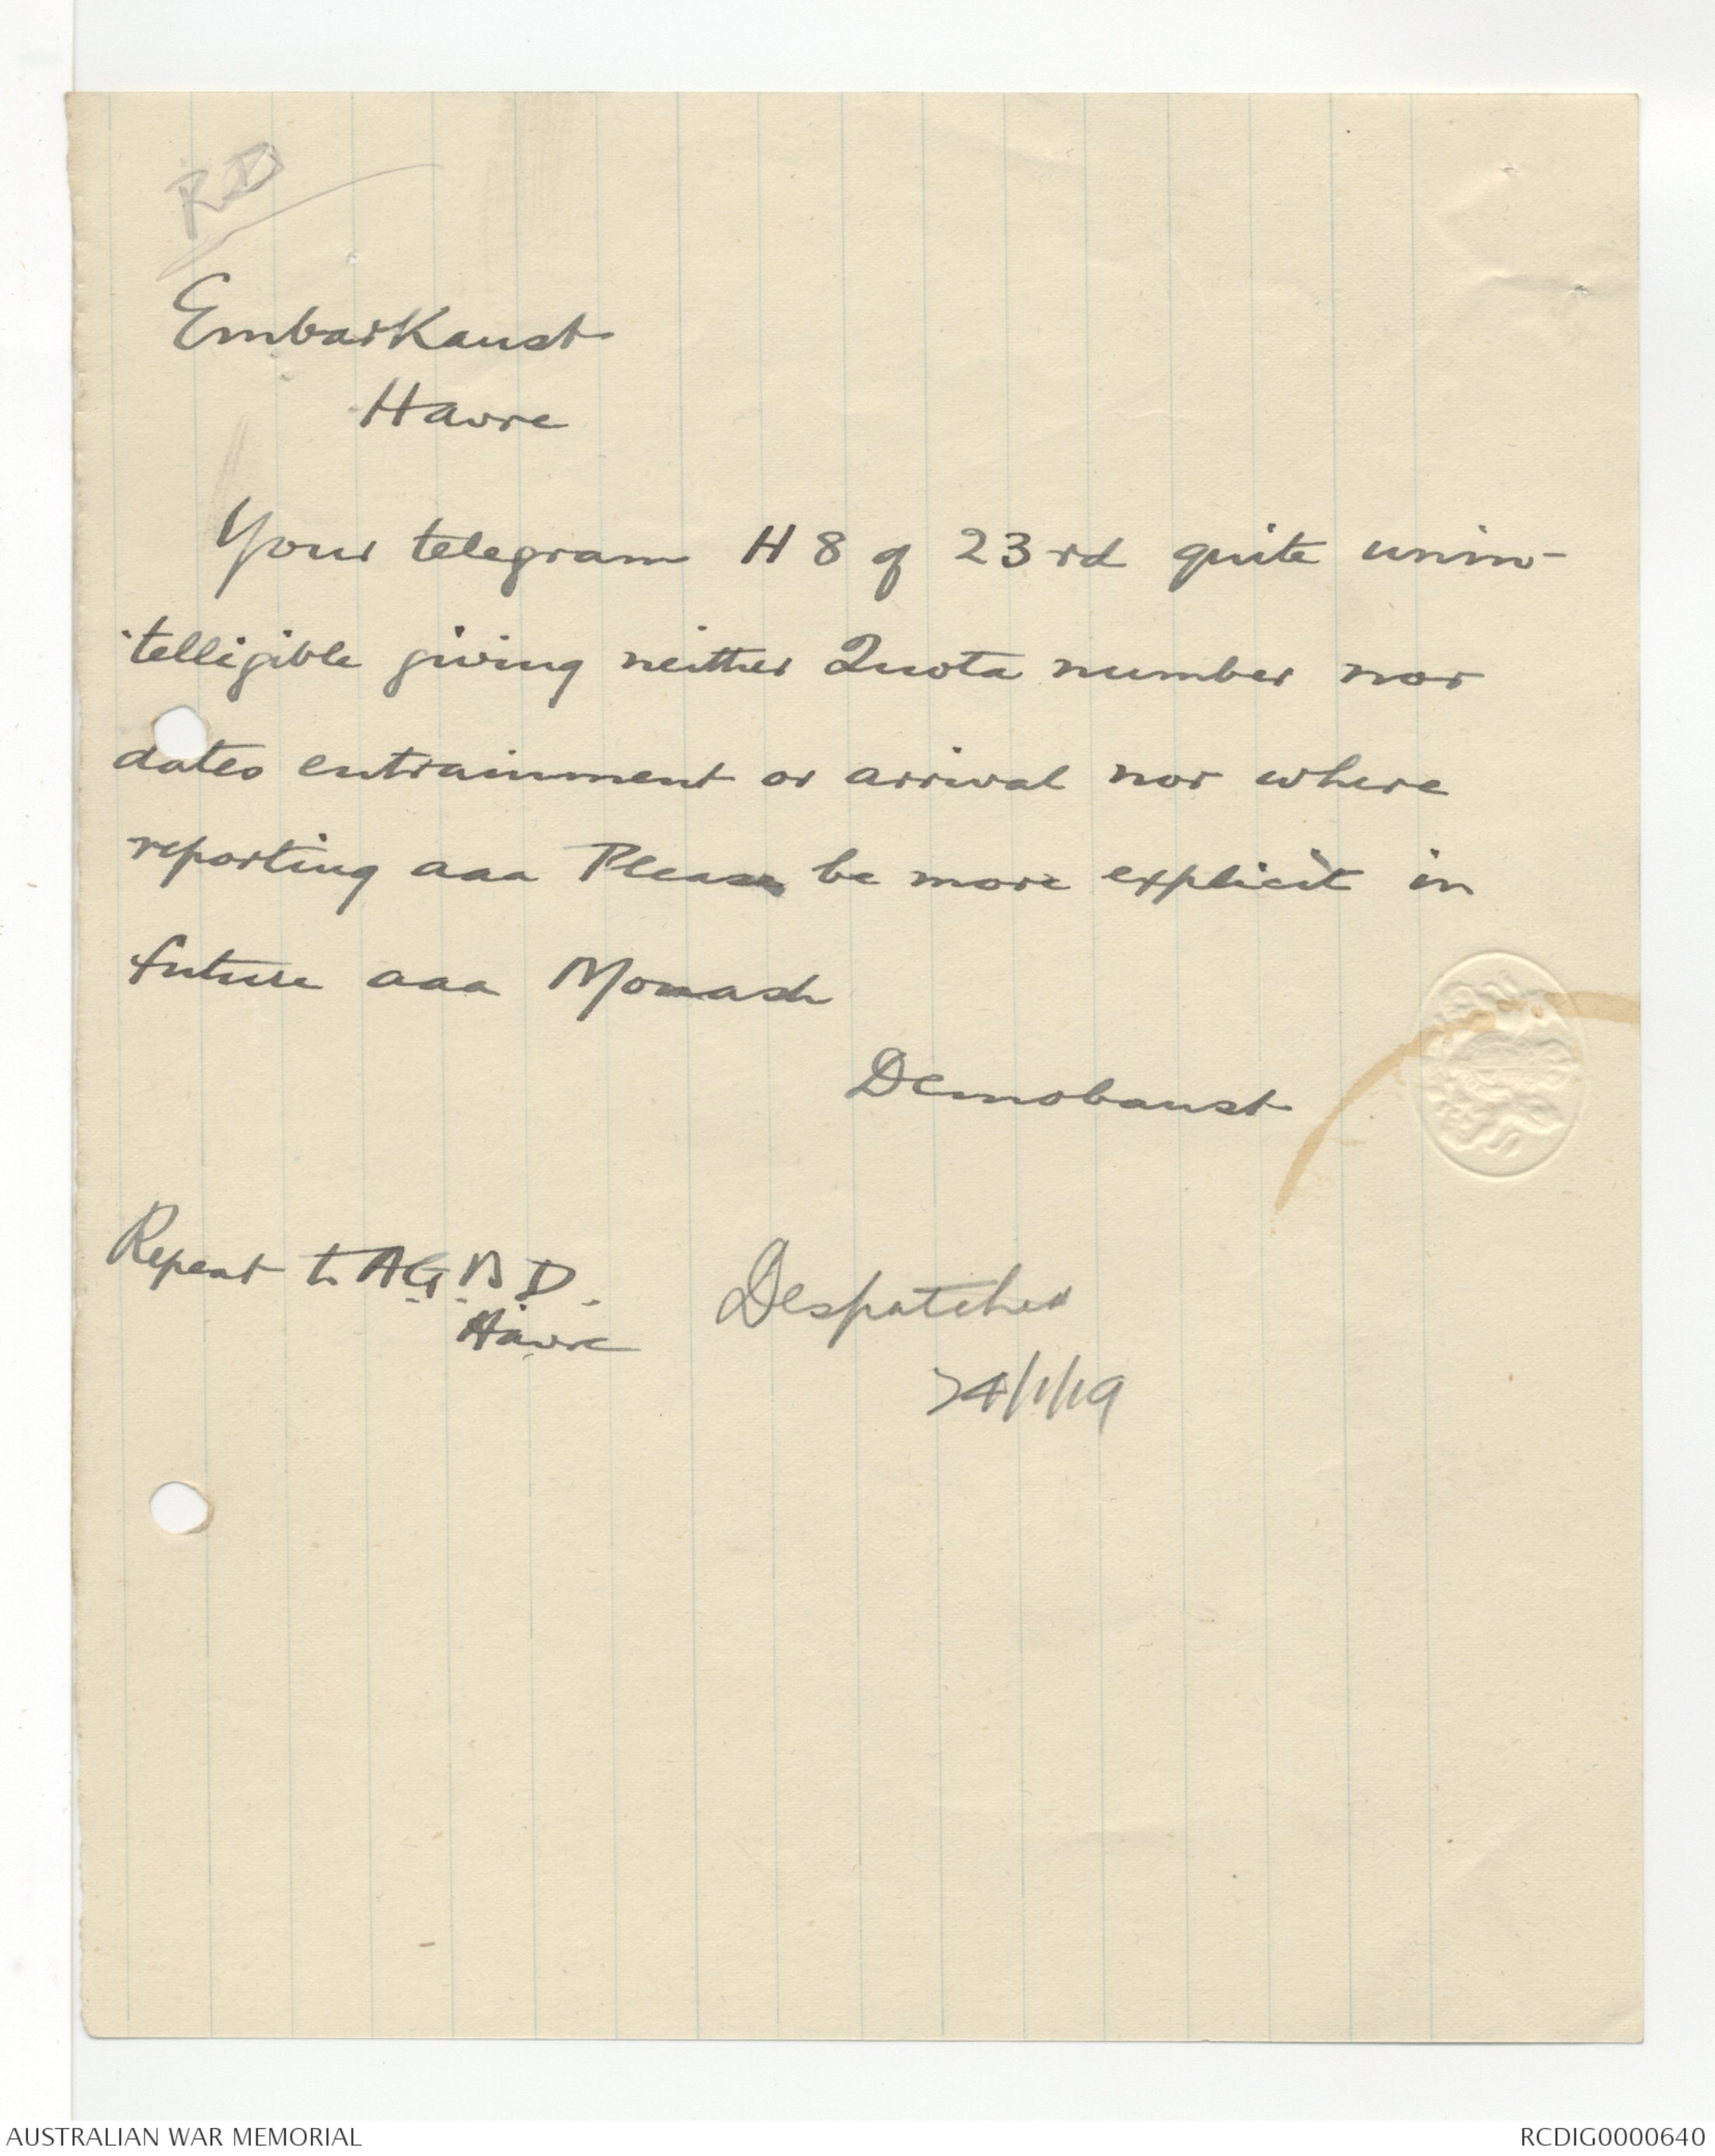 RD
Embarkaust
Havre
Your telegram H 8 of 23rd quite unin-
telligible giving neither Quota number nor
dates entrainment or arrival nor where
reporting aaa Please be more explicit in
future aaa Monash
Demobaust
Repeat to A.G.B.D.
Havre
Despatched
24/1/19
AUSTRALIAN WAR MEMORIAL
RCDIG0000640